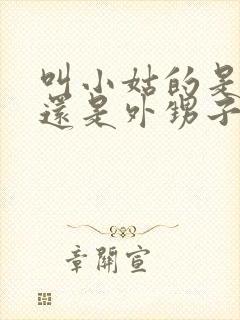 叫小姑的是
還是外甥子
章開宣